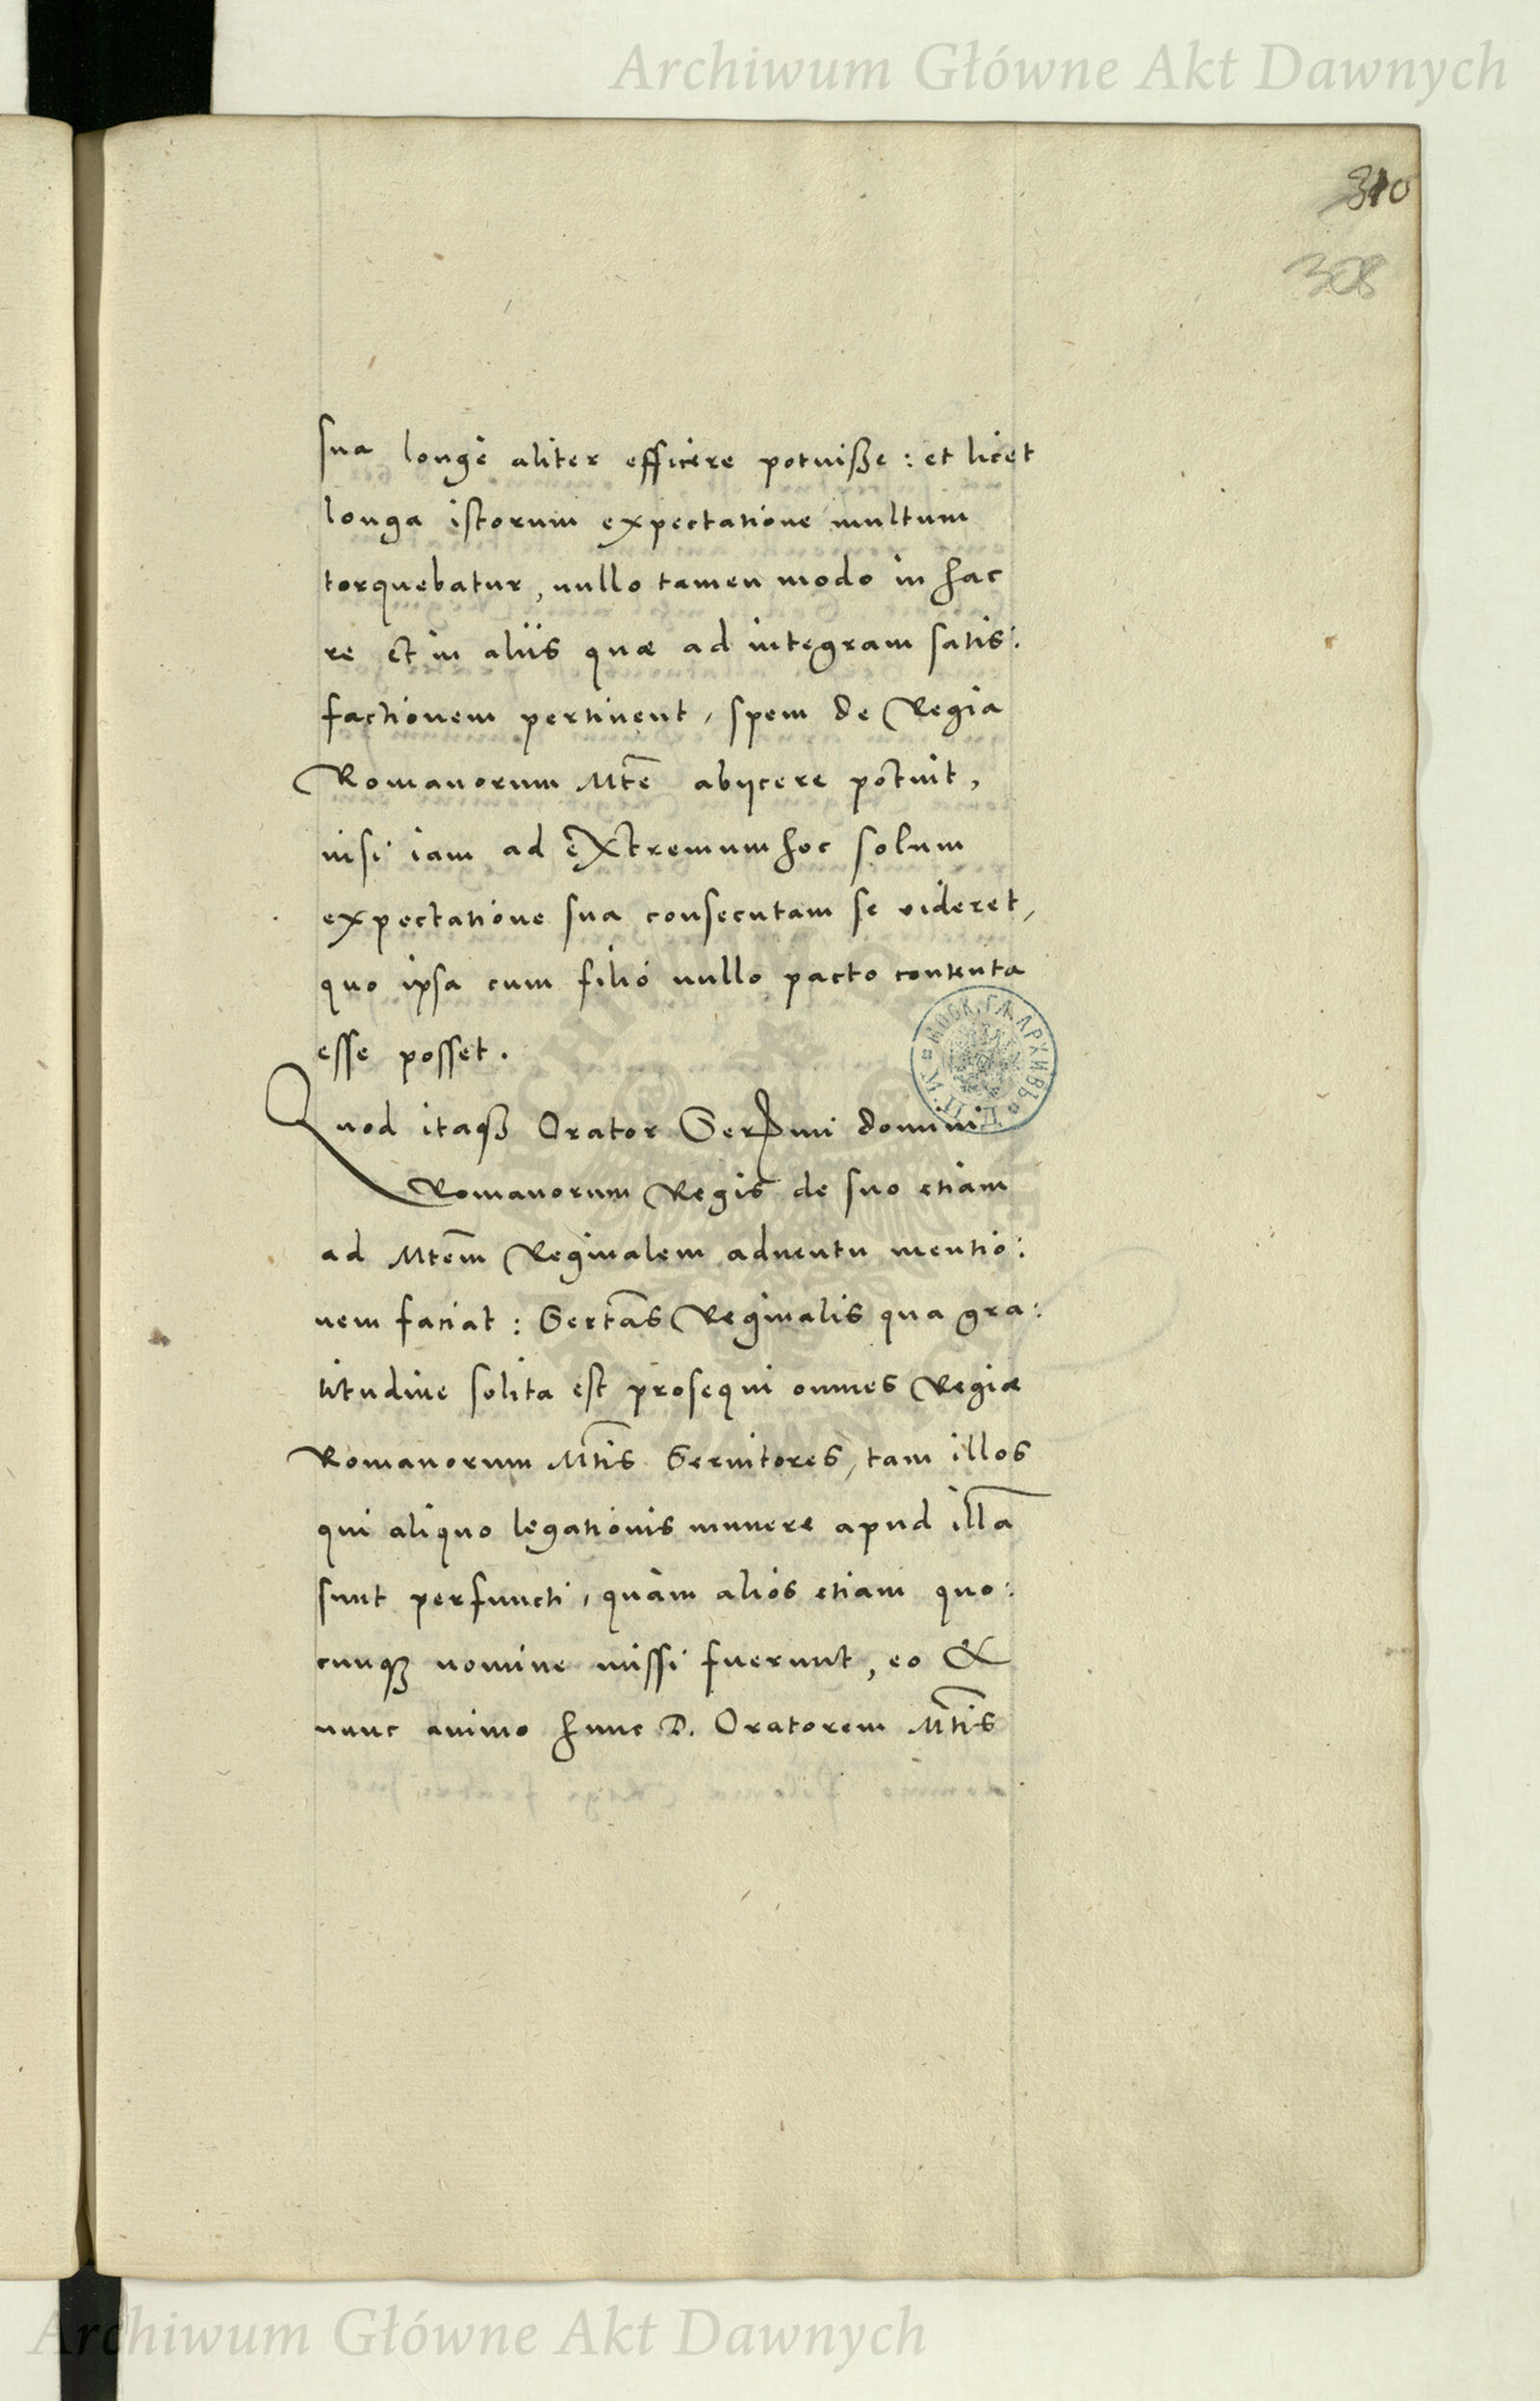 Archiwum Główne Akt Dawnych
310
308
sua longe aliter efficere potuisse : et licet
longa istorum expectatione multum
torquebatur, nullo tamen modo in hac
re et in aliis quæ ad integram satis:
factionem pertinent, spem de Regia
Romanorum Mte abycere potuit,
nisi iam ad extremum hoc solum
expectatione sua consecutam se videret,
quo ipsa cum filio nullo pacto contenta
esse posset.
Quod itaqꝫ Orator Sermi domini
Romanorum Regis de suo etiam
ad Mtem Reginalem aduentu mentio:
nem faciat : Sertas Reginalis qua gra:
titudine solita est prosequi omnes Regiæ
Romanorum Mtis Seruitores, tam illos
qui aliquo legationis munere apud illa
sunt perfuncti, quàm alios etiam quo:
cunqꝫ nomine missi fuerunt, eo &
nunc animo hunc D. Oratorem Mtis
МОСК. ГЛ. АРХИВЪ
Archiwum Główne Akt Dawnych